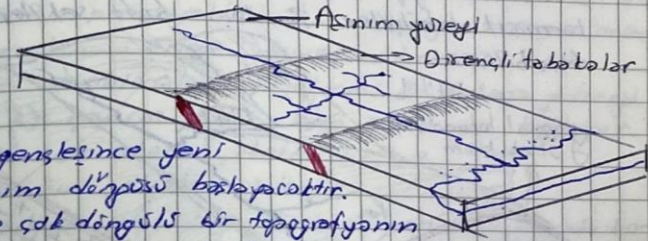 Aşınım yüzeyi
Dirençli tabakalar
gençleşince yeni
ım döngüsü başlayacaktır.
çok döngülü bir topografyanın